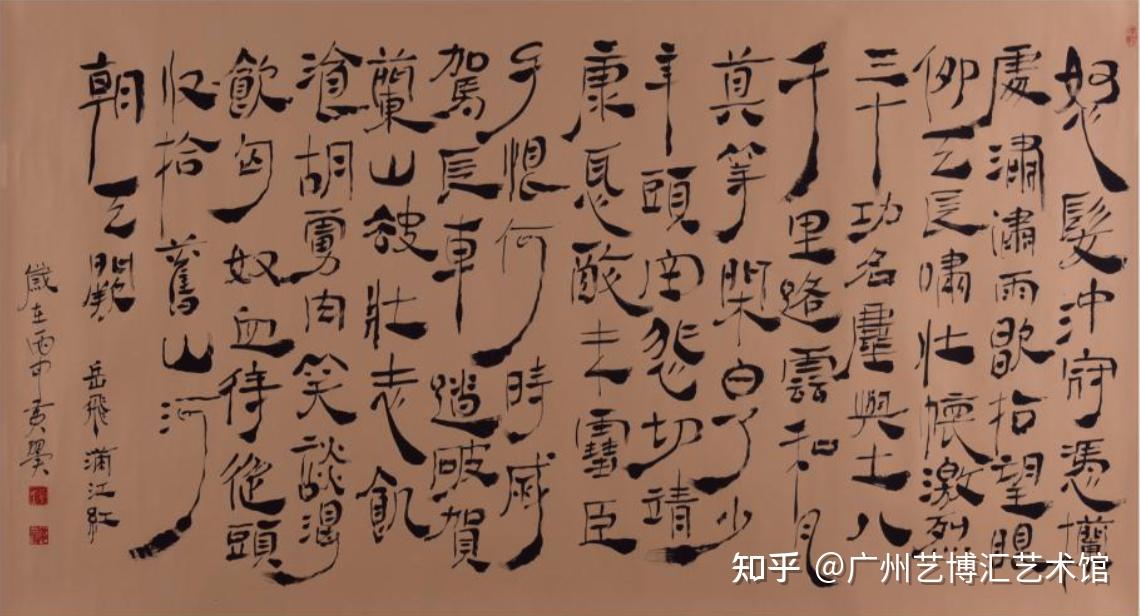 怒髮沖冠憑欄
處瀟瀟雨歇抬望眼
仰天長嘯壯懷激烈
三十功名塵與土八
千里路雲和月
莫等閑白了少
年頭空悲切靖
康恥猶未雪臣
子恨何時滅
駕長車踏破賀
蘭山缺壯志飢
湌胡虜肉笑談渴
飲匈奴血待從頭
收拾舊山河
朝天闕 岳飛 滿江紅
歲在丙申黃
知乎 @广州艺博汇艺术馆